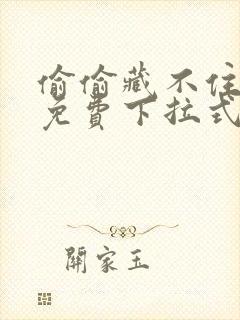 偷偷藏不住
免費下拉式
關家玉